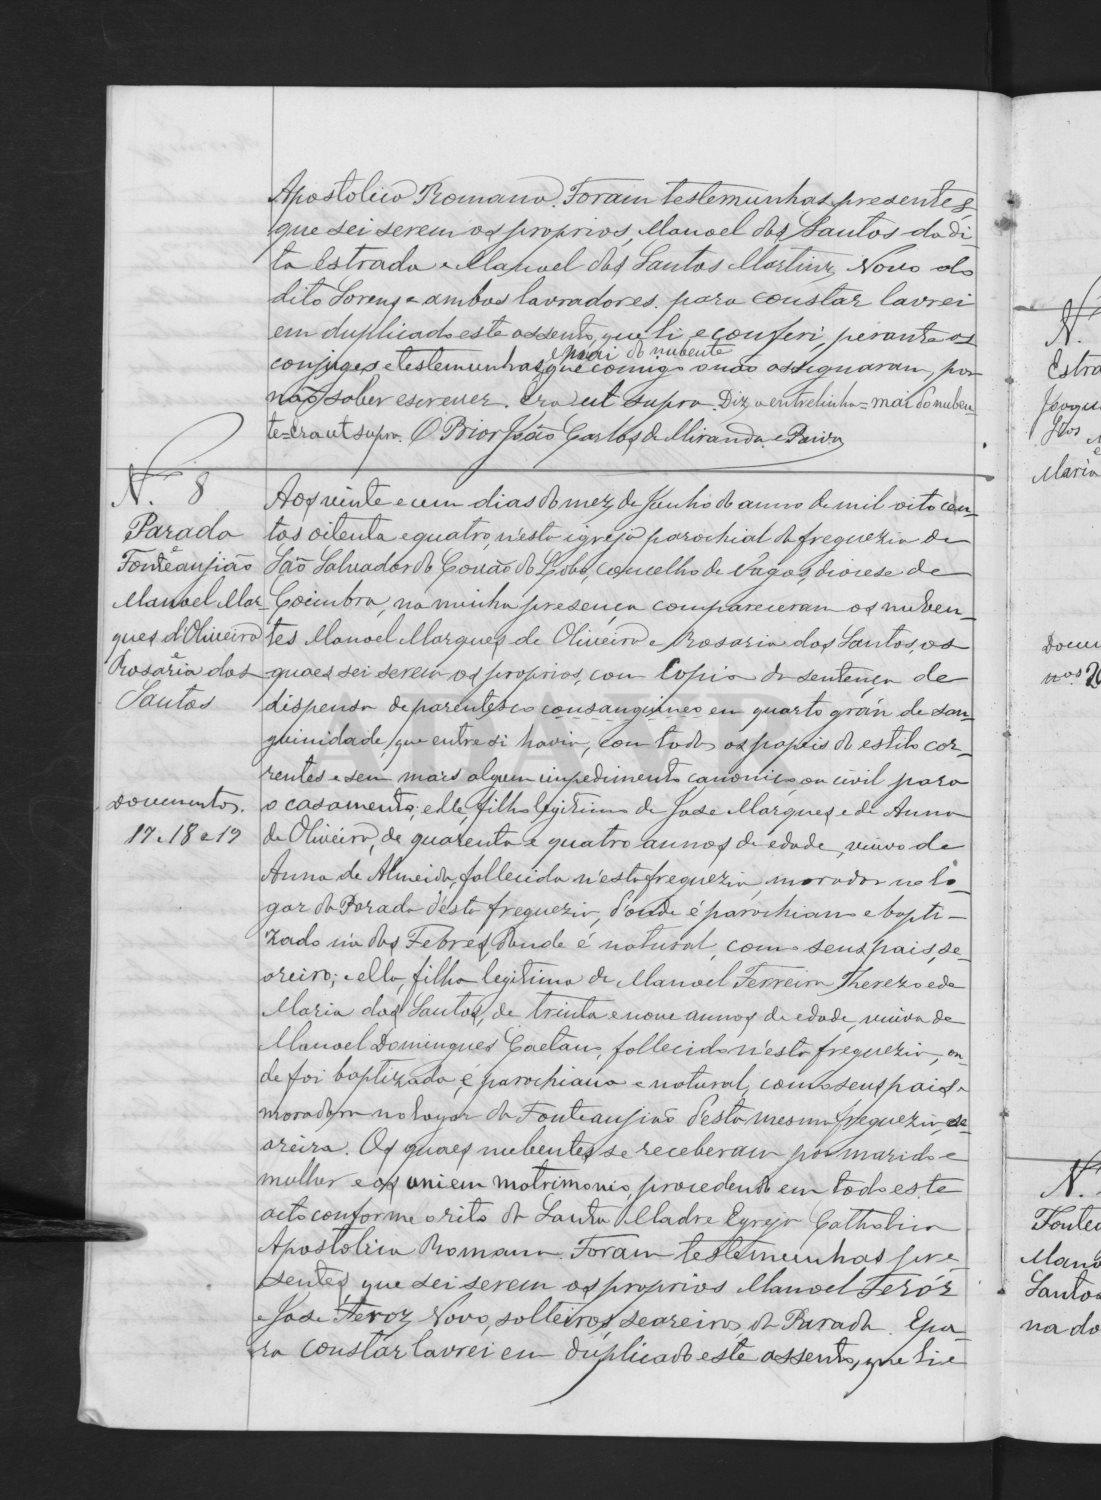 Apostolica Romana. Foram testemunhas presentes,
que sei serem os proprios, Manoel dos Santos da di-
ta Estrada e Manoel dos Santos Martins Novo do
dito Lorenge ambos lavradores. para constar lavrei
em duplicado este assento, que li, e conferi, perante os
e mai do nubente
conjuges e testemunhas, que comigo não assignaram, por
não saber escrever. Era ut supra. Diz a entrelinha = mai do nuben-
te = Era ut supra. O Prior João Carlos de Miranda e Paiva
N. 8
Parada
e
Fonte anjião
Manoel Mar-
ques d'Oliveira
e
Rosaria dos
Santos
Documentos.
17, 18 e 19
Aos vinte e um dias do mez de Junho do anno de mil oito cen-
tos oitenta e quatro, n'esta igreja parochial da freguezia de
São Salvador do Covão do Lobo, concelho de Vagos, diocese de
Coimbra, na minha presença compareceram os nuben-
tes Manoel Marques de Oliveira e Rosaria dos Santos, os
quaes sei serem os proprios, com Copia da sentença de
dispensa de parentesco consanguineo em quarto gráu de san-
guinidade, que entre si havia, com todos os papeis do estilo cor-
rentes e sem mais algum impedimento canonico, ou civil para
o casamento; elle, filho legitimo de Jose Marques e de Anna
de Oliveira, de quarenta e quatro annos de edade, viuvo de
Anna de Almeida, fallecida n'esta freguezia, morador no lo-
gar da Parada d'esta freguezia, d'onde é parochiano e bapti-
zado n'a das Febres d'onde é natural, como seus pais, se-
areiro; e ella, filha legitima de Manoel Ferreira Thereza e de
Maria dos Santos, de trinta e nove annos de edade, viuva de
Manoel Domingues Caetano, fallecido n'esta freguezia, on-
de foi baptizada, é parochiana e natural, como seus pais e
moradora no logar da Fonte anjião d'esta mesma freguezia, se-
areira. Os quaes nubentes se receberam por marido e
mulher e os uni em matrimonio, procedendo em todo este
acto conforme o rito da Santa Madre Egreja Catholica
Apostolica Romana. Foram testemunhas pre-
sentes, que sei serem os proprios Manoel Feróz
e Jose Feroz Novo, solteiros, seareiros, da Parada. E pa-
ra constar lavrei em duplicado este assento, que li e
N.
Estra
Joaqu
Maria
Docu
nos 20
N.
Fonte
Mano
Santos
na do